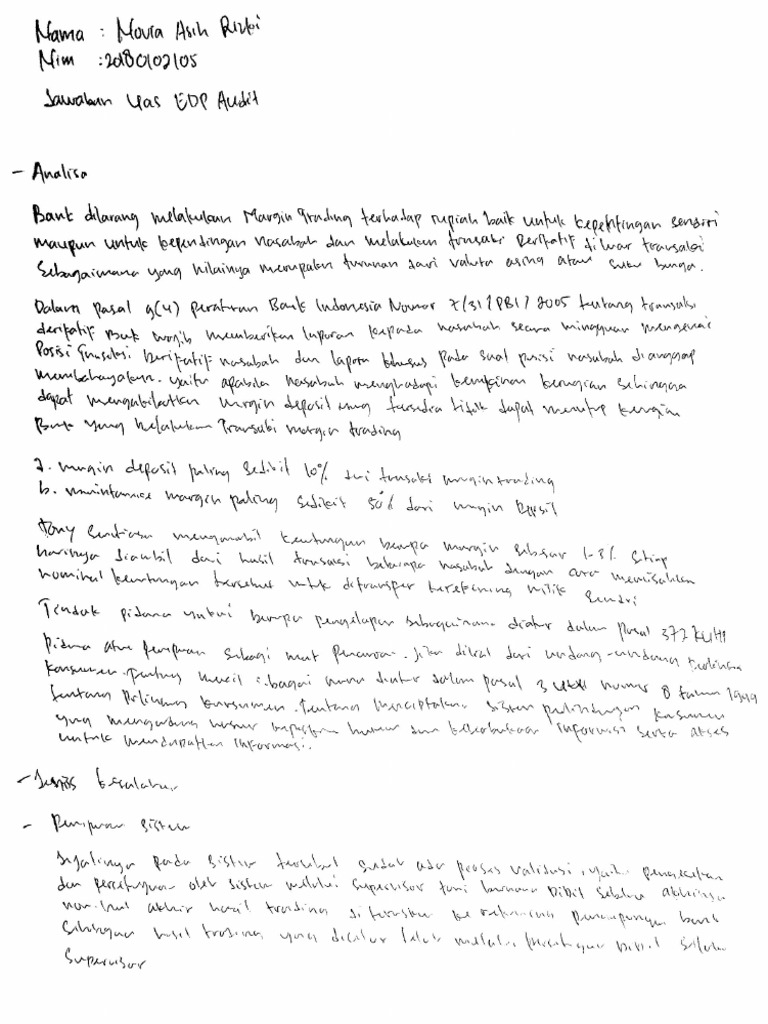 Nama : Moura Asih Rizki
Nim : 20180102105
Jawaban Uas EDP Audit
- Analisa
Bank dilarang melakukan Margin trading terhadap rupiah baik untuk kepentingan sendiri
maupun untuk kepentingan nasabah dan melakukan transaksi Derifatif diluar transaksi
Sebagaimana yang nilainya merupakan turunan dari valuta asing atau suku bunga.
Dalam pasal 9(4) peraturan Bank Indonesia Nomor 7/31/PBI/2005 tentang transaksi
derifatif Bank wajib memberikan laporan kepada nasabah secara mingguan mengenai
Posisi transaksi Derifatif nasabah dan laporan khusus pada saat posisi nasabah dianggap
membahayakan. yaitu apabila nasabah menghadapi kerugian Sehingga
dapat mengakibatkan margin deposit yang tersedia tidak dapat menutup kerugian
Bank yang melakukan Transaksi margin trading
a. margin deposit paling Sedikit 10% dari transaksi margin trading
b. maintannce margin paling Sedikit 50% dari margin Deposit
Tony mengambil keuntungan berupa margin Sebesar 1-3% Setiap
harinya diambil dari hasil transaksi beberapa nasabah dengan cara memisahkan
nominal keuntungan tersebut untuk ditransfer kerekening milik Sendiri
Tindak pidana yakni berupa pengelapan sebagaimana diatur dalam Pasal 372 KUH
Pidana atau penipuan sebagi mata Pencarian. Jika dilihat dari undang-undang
konsumen. diatur dalam pasal 3 numor 8 tahun 1999
tentang konsumen. Tentang menciptakan Sistem perlindungan konsumen
yang mengandung unsur kepastian hukum dan keterbukaan informasi serta akses
untuk mendapatkan informasi.
- Jenis kesalahan
- Penipuan Sistem
pada Sistem tersebut sudah ada proses validasi, yaitu pengecekan
dan persetujuan oleh sistem melalui supervisor
nominal akhir hasil trading diteruskan ke rekening penampungan bank
Sehingga hasil trading yang telah melalui persetujuan
Supervisor